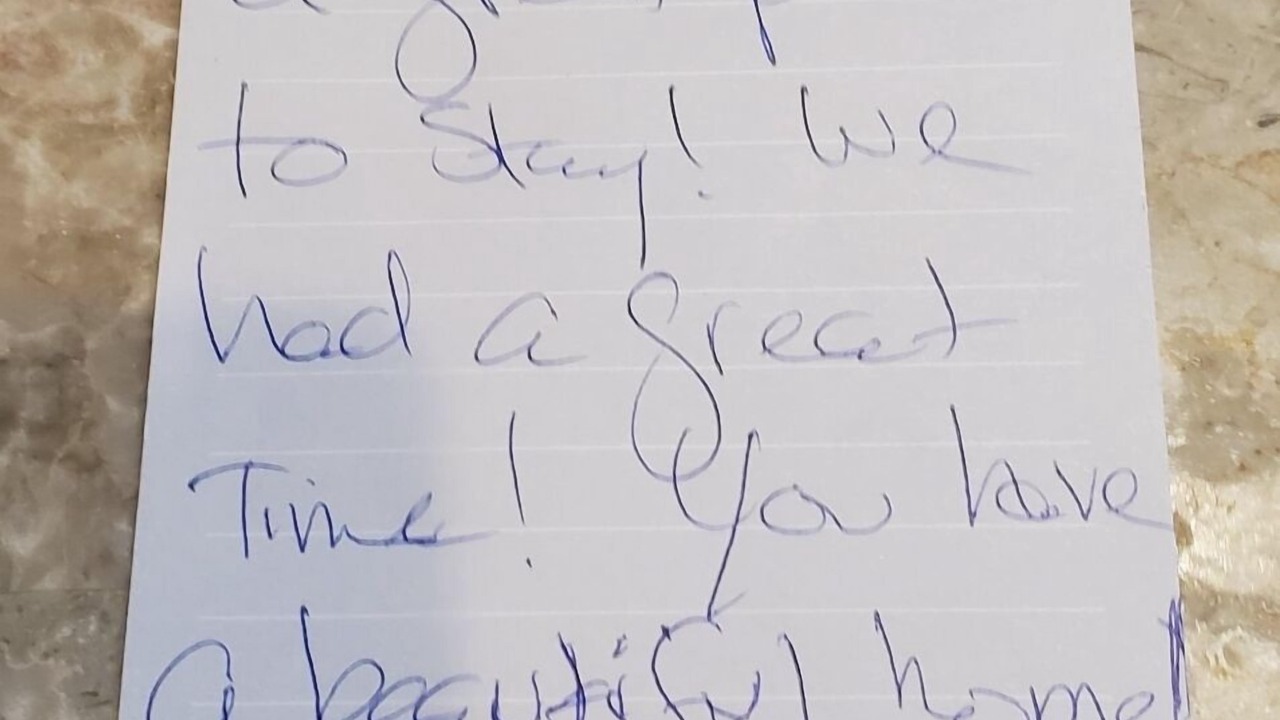 to stay! We
had a great
Time! You have
a beautiful home!